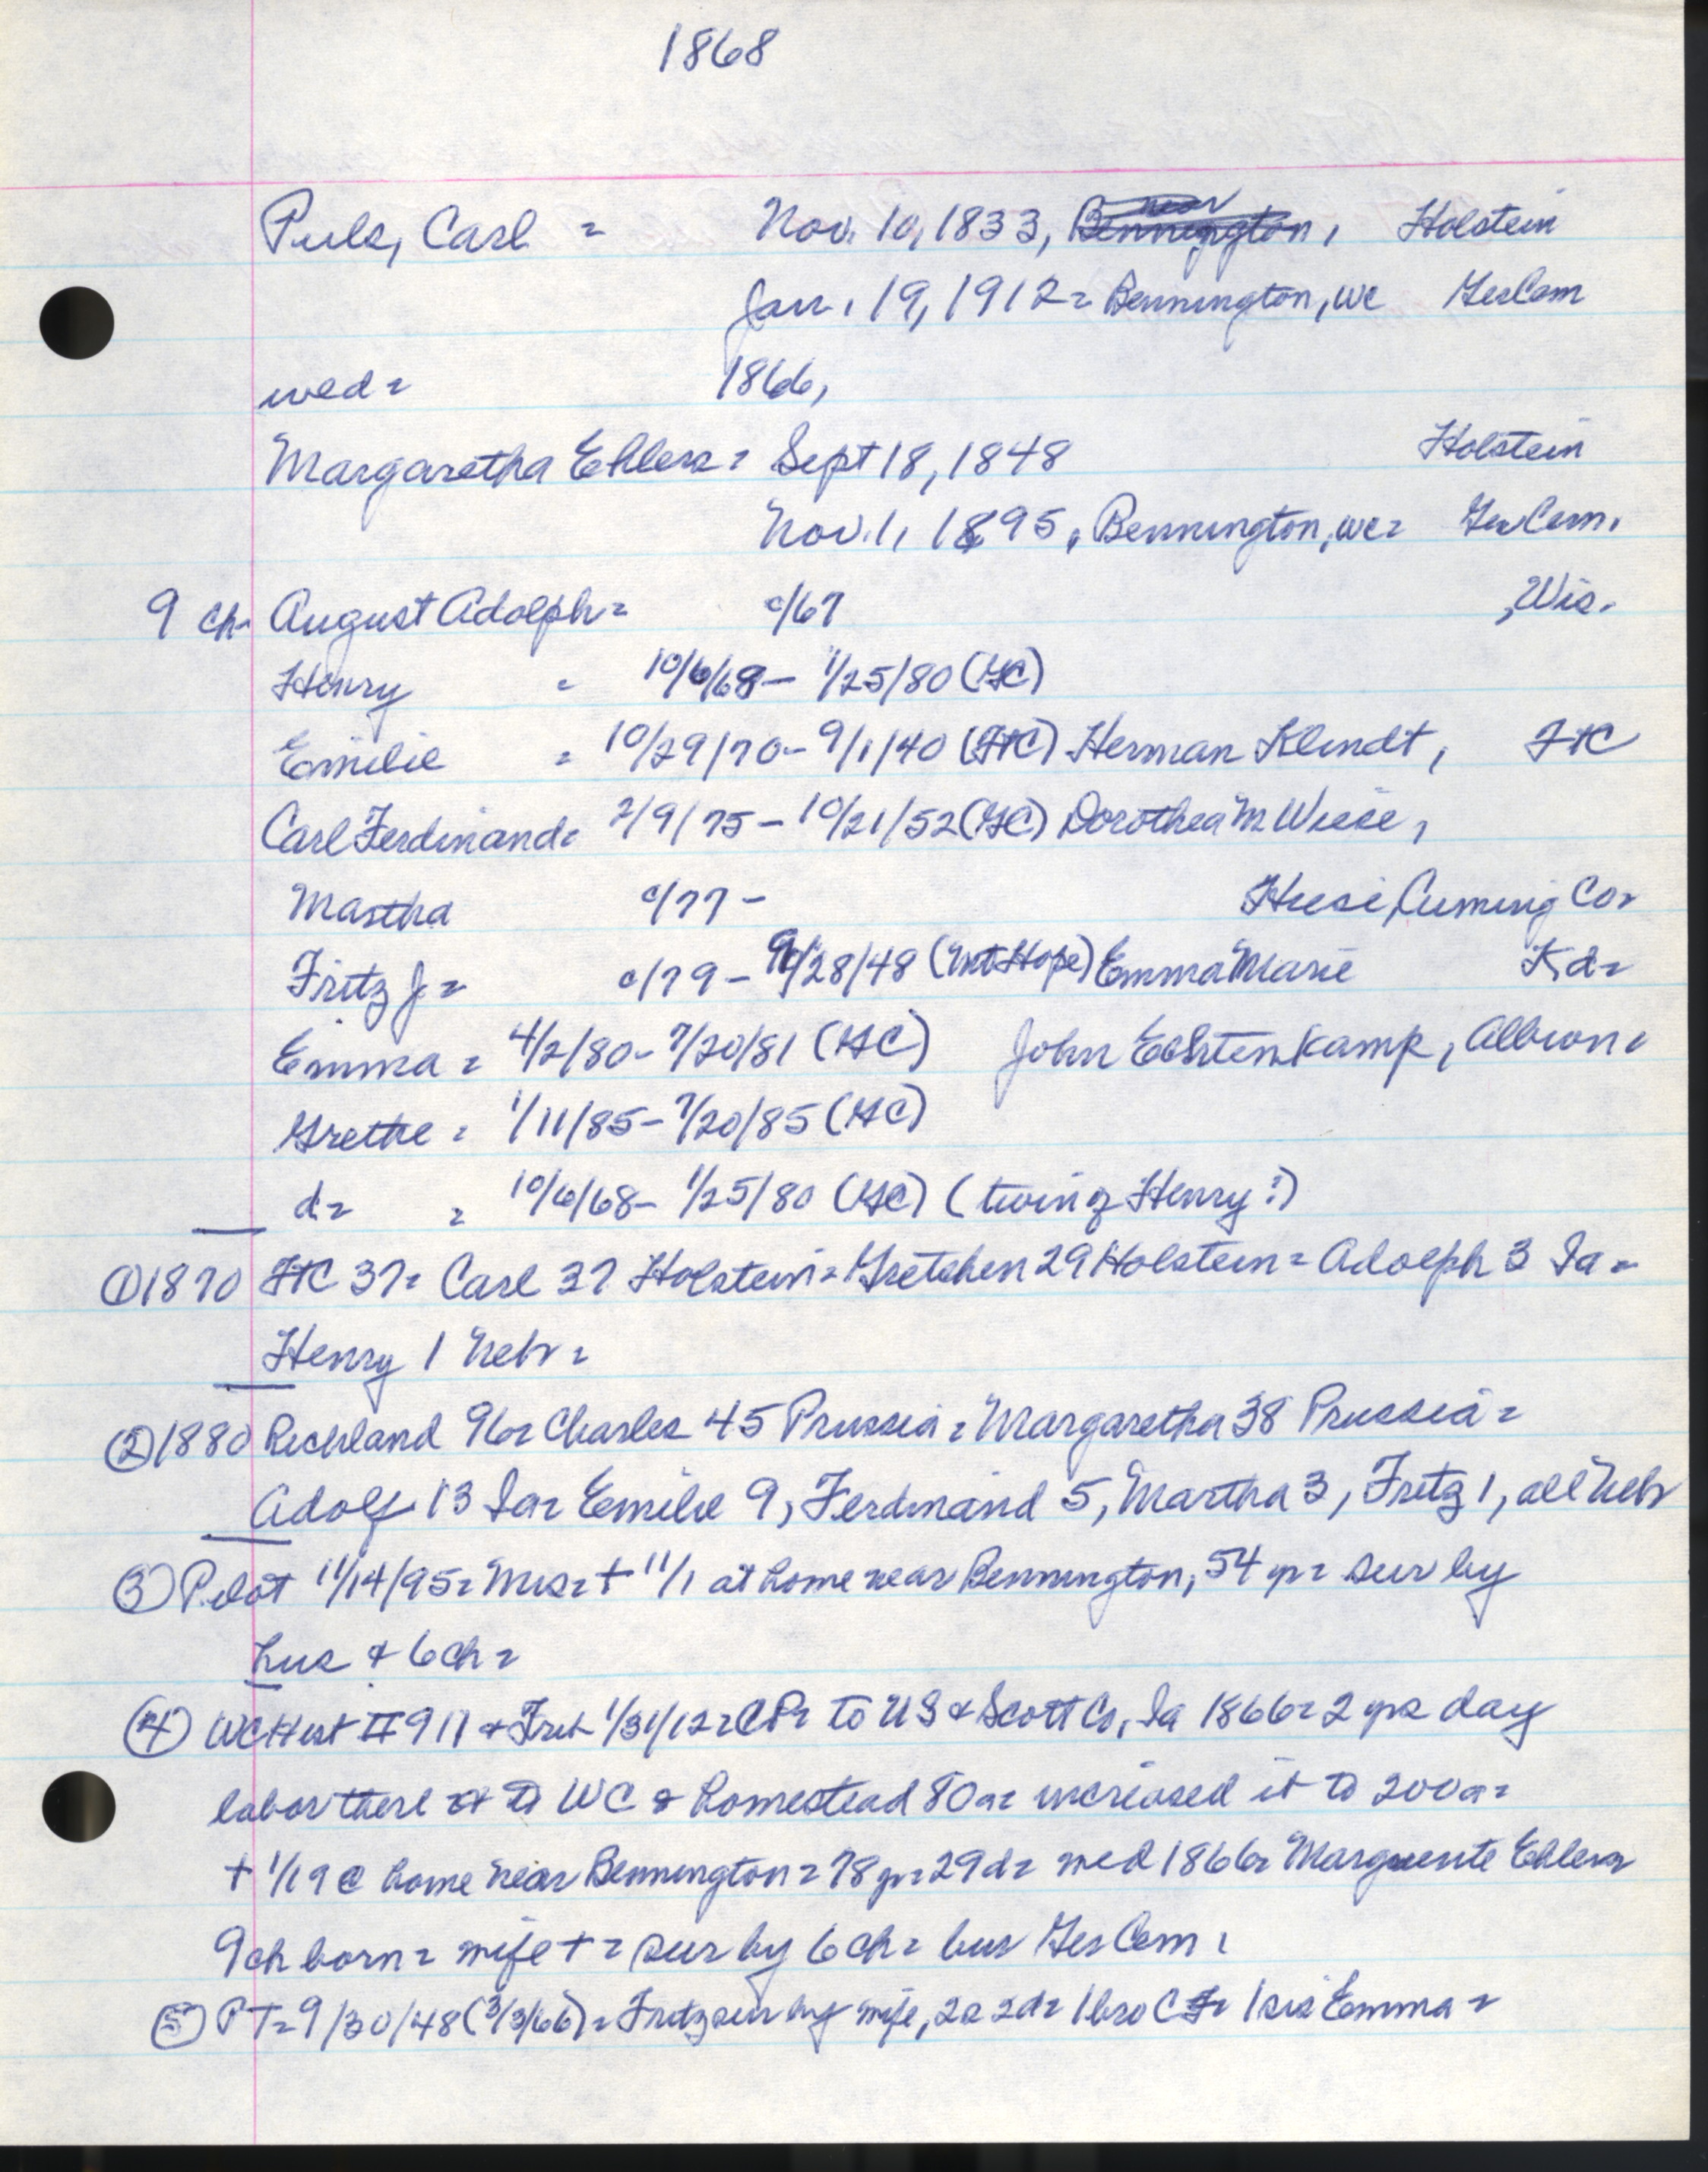 1868
Puls, Carl = Nov. 10, 1833, near Bennington, Holstein
Jan. 19, 1912 = Bennington, WC Ger Cem
wed = 1866,
Margaretha Ehlers = Sept 18, 1848 Holstein
Nov. 1, 1895, Bennington, WC = Ger Cem.
9 ch. August Adolph = c/67 , Wis.
Henry = 10/6/68 - 1/25/80 (GC)
Emilie = 10/29/70 - 9/1/40 (FtC) Herman Klindt, FtC
Carl Ferdinand = 2/9/75 - 10/21/52 (GC) Dorothea M Wiese,
Martha c/77 - Huse, Cuming Co =
Fritz J = c/79 - 9/28/48 (Mt Hope) Emma Marie K d =
Emma = 4/2/80 - 7/20/81 (GC) John Echtenkamp, Albion =
Grethe = 1/11/85 - 7/20/85 (GC)
d = = 10/6/68 - 1/25/80 (GC) (twin of Henry?)
① 1870 FtC 37 = Carl 37 Holstein = Gretchen 29 Holstein = Adolph 3 Ia =
Henry 1 Nebr =
② 1880 Richland 96 = Charles 45 Prussia = Margaretha 38 Prussia =
Adolf 13 Ia = Emilie 9, Ferdinand 5, Martha 3, Fritz 1, all Nebr
③ Pilot 11/14/95 = Mrs = + 11/1 at home near Bennington, 54 yr = sur by
hus & 6 ch =
④ WC Hist II 911 & Trib 1/31/12 = CP = to US & Scott Co, Ia 1866 = 2 yrs day
labor there to WC & homestead 80a = increased it to 200a =
+ 1/19 @ home near Bennington = 78 yr = 29 d = wed 1866 = Marguerite Ehlers
9 ch born = wife + = sur by 6 ch = bur Ger Cem.
⑤ PT = 9/30/48 (3/3/66) = Fritz sur by wife, 2s 2d = 1 bro C F = 1 sis Emma =